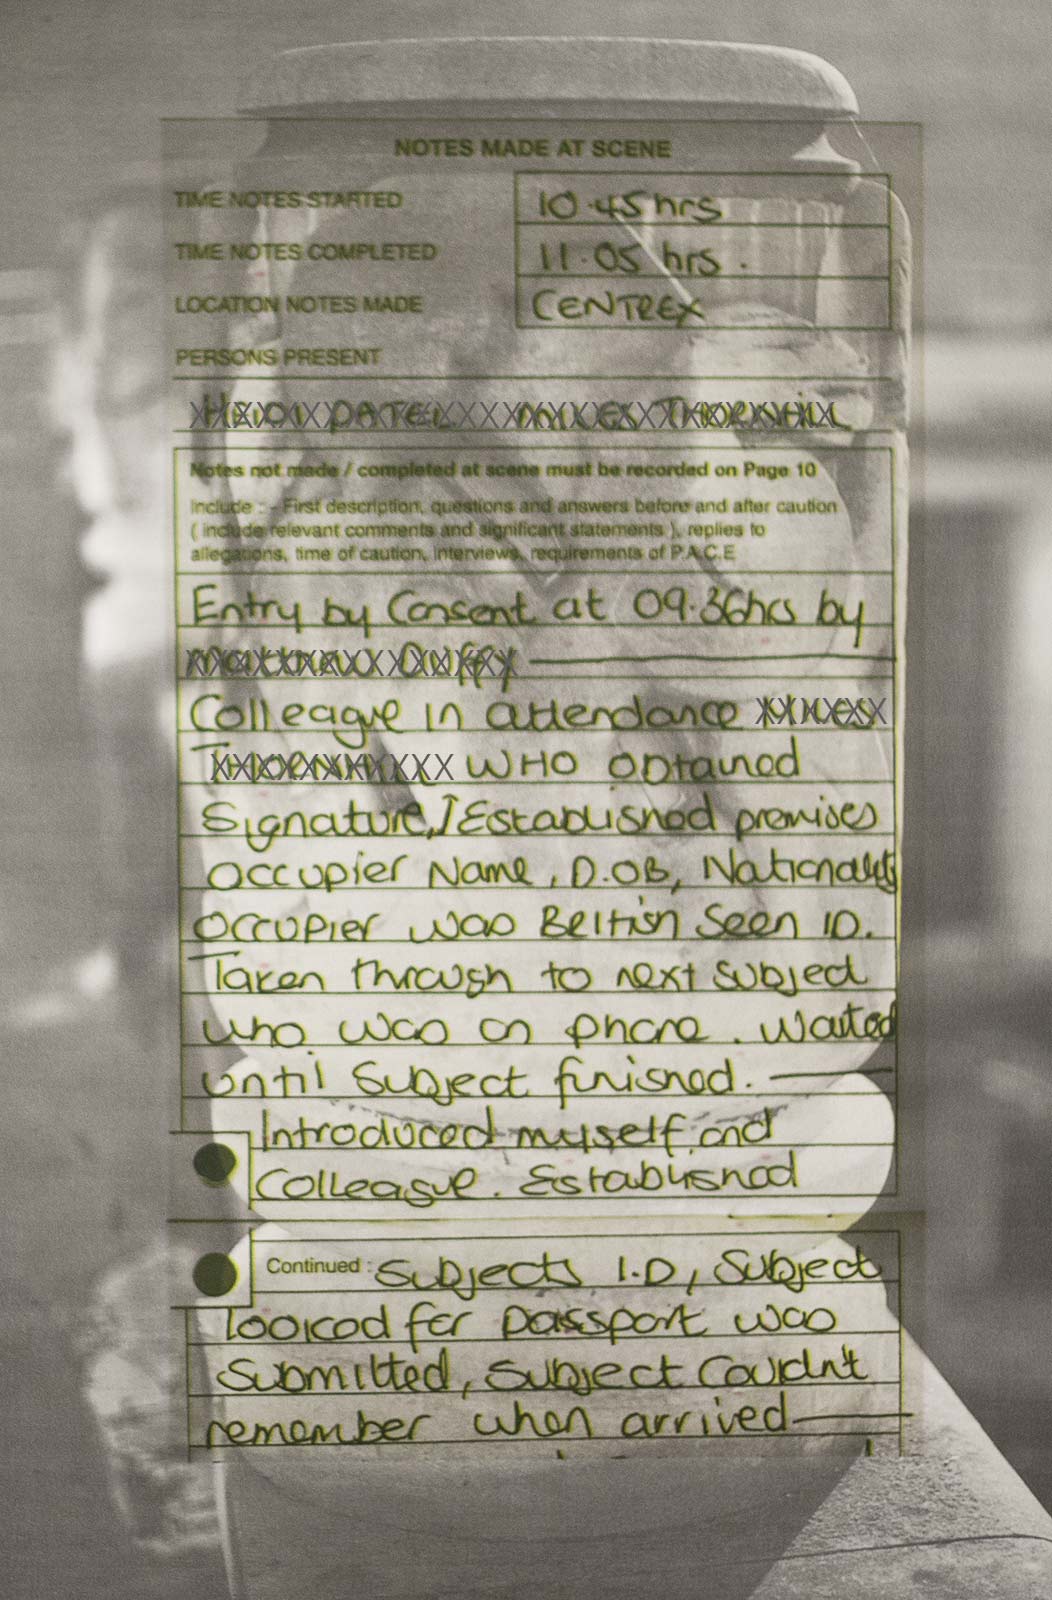 NOTES MADE AT SCENE
TIME NOTES STARTED 10.45 hrs
TIME NOTES COMPLETED 11.05 hrs.
LOCATION NOTES MADE CENTREX
PERSONS PRESENT
Notes not made / completed at scene must be recorded on Page 10
Include : - First description, questions and answers before and after caution
( include relevant comments and significant statements ), replies to
allegations, time of caution, interviews, requirements of P.A.C.E
Entry by Consent at 09.36hrs by
Colleague in attendance
WHO obtained
Signature, I Established premises
Occupier Name, D.OB, Nationality
Occupier was British Seen ID.
Taken through to next subject
who was on phone. Waited
until Subject finished.
Introduced myself and
Colleague. Established
Continued : Subjects I.D, Subject
looked for passport was
Submitted, Subject Couldn't
remember when arrived